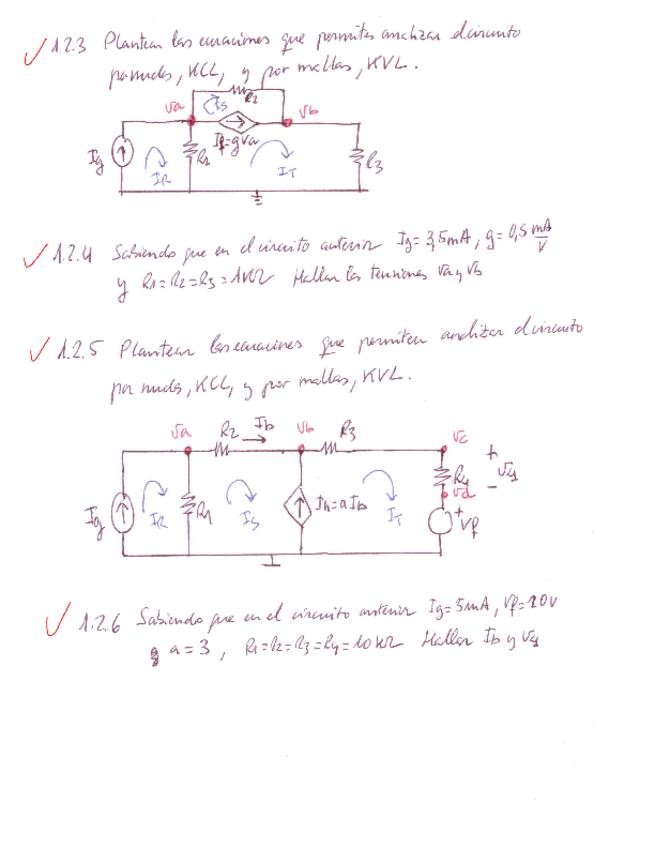 1.2.3 Plantear las ecuaciones que permiten analizar el circuito
por nudos, KCL, y por mallas, KVL.
R2
Va IS Vb
If=gVa
Ig R1 R3
IR IT
1.2.4 Sabiendo que en el circuito anterior Ig=3,5mA, g=0,5 mA/V
y R1=R2=R3=1kΩ Hallar las tensiones Va y Vb
1.2.5 Plantear las ecuaciones que permiten analizar el circuito
por nudos, KCL, y por mallas, KVL.
Va R2 Ib Vb R3 Vc +
R4 V4
Vd -
Ig IR R1 IS Ih=aIb IT + Vf
1.2.6 Sabiendo que en el circuito anterior Ig=5mA, Vf=20V
y a=3, R1=R2=R3=R4=10kΩ Hallar Ib y V4